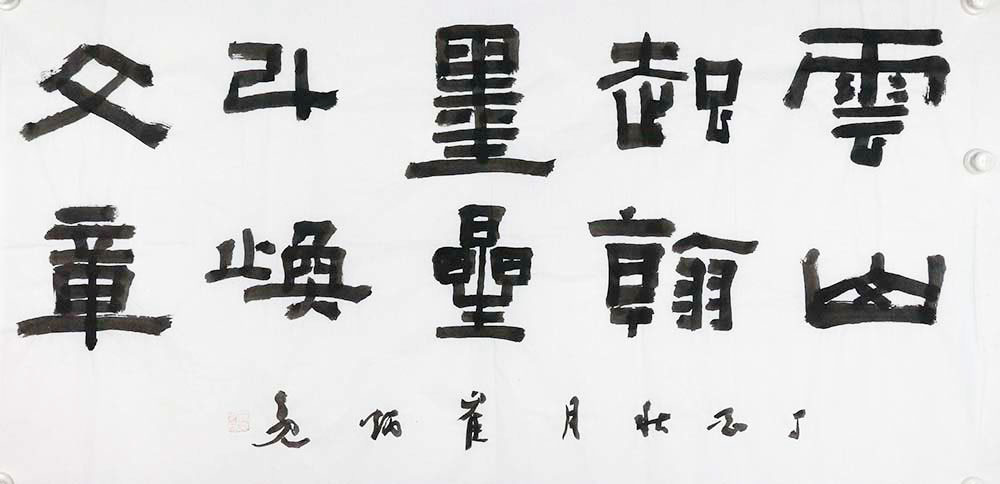 雲山
起翰
墨曐
斗煥
文章
丁酉秋月崔炳